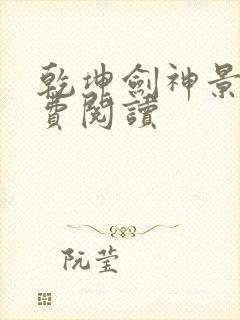 乾坤劍神景
費閱讀
阮莹